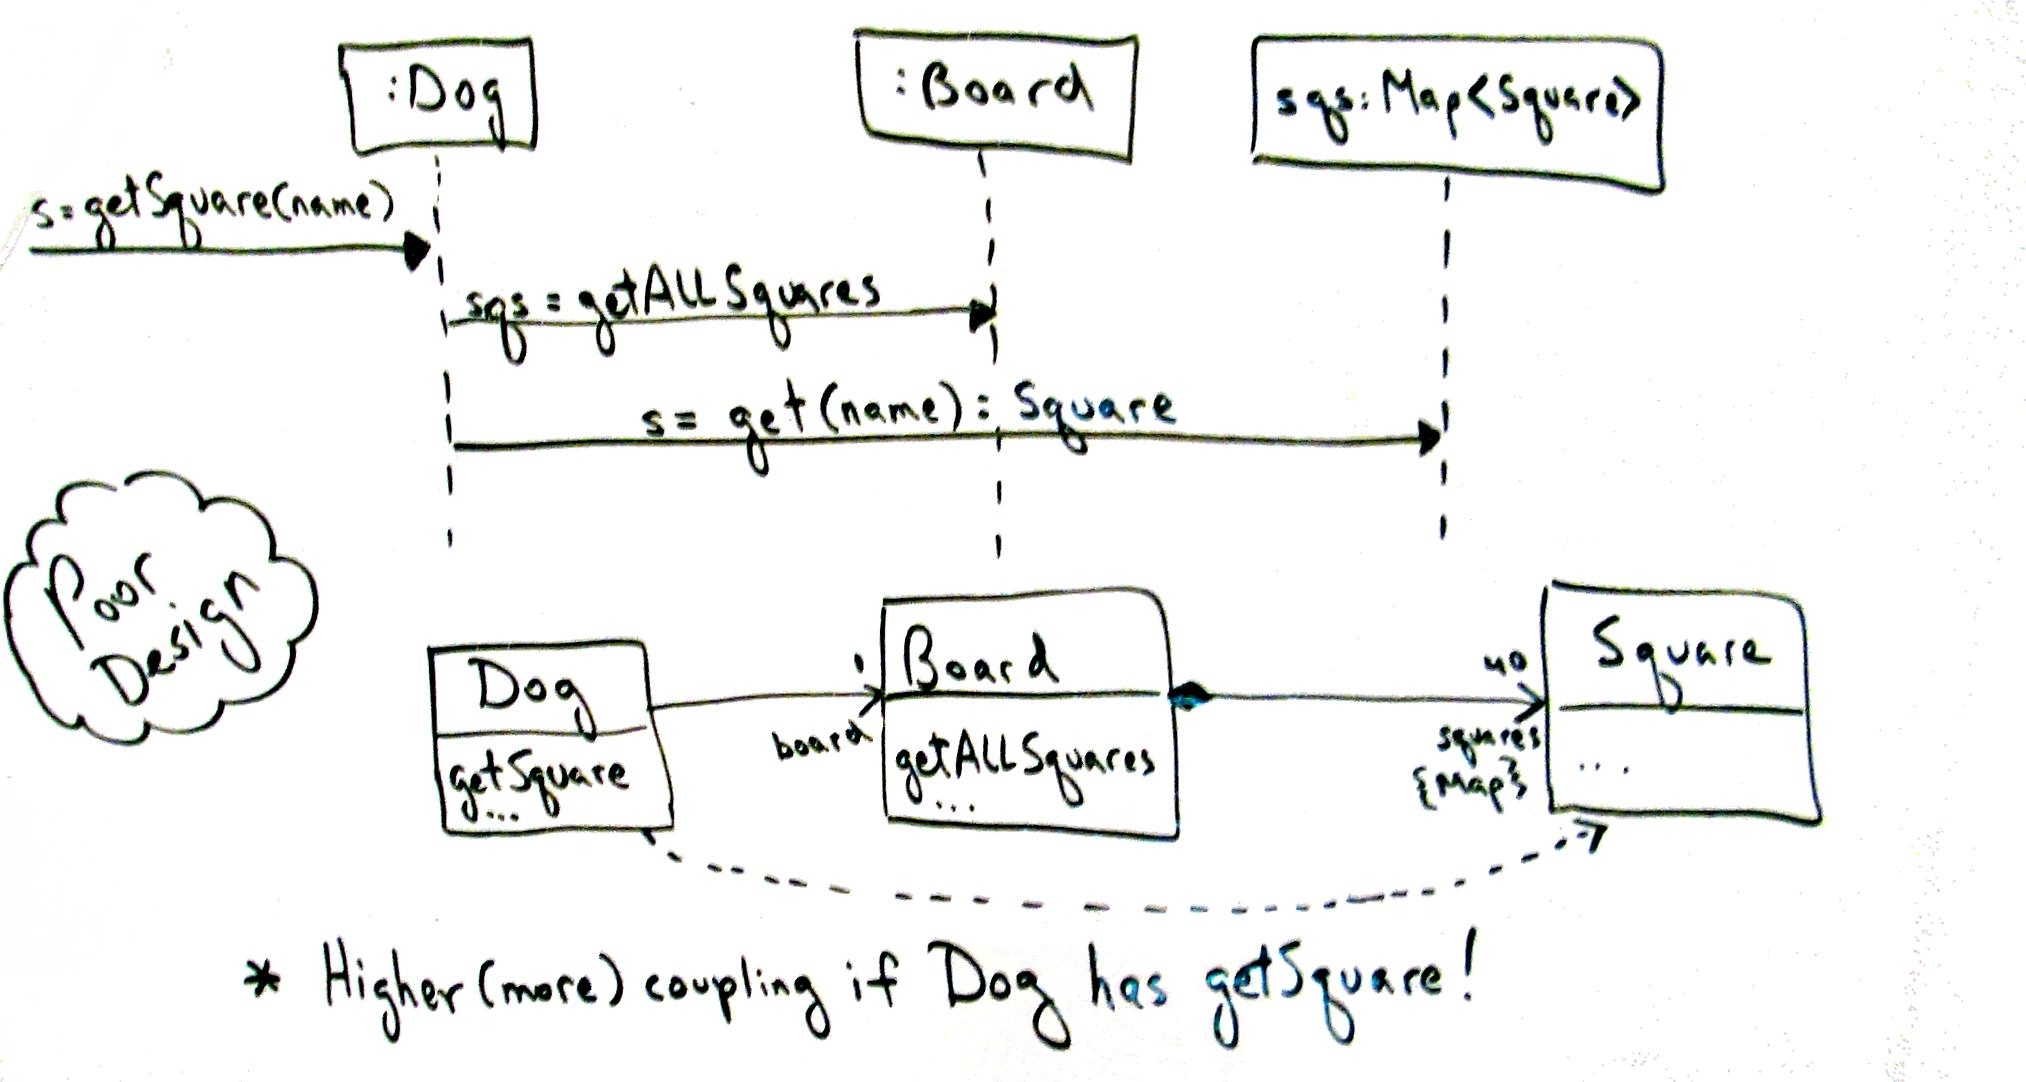 :Dog
:Board
sqs: Map<Square>
s=getSquare(name)
sqs = getALLSquares
s= get(name): Square
Poor
Design
Dog
getSquare
...
board
1
Board
getALLSquares
...
40
squares
{Map}
Square
...
* Higher (more) coupling if Dog has getSquare!